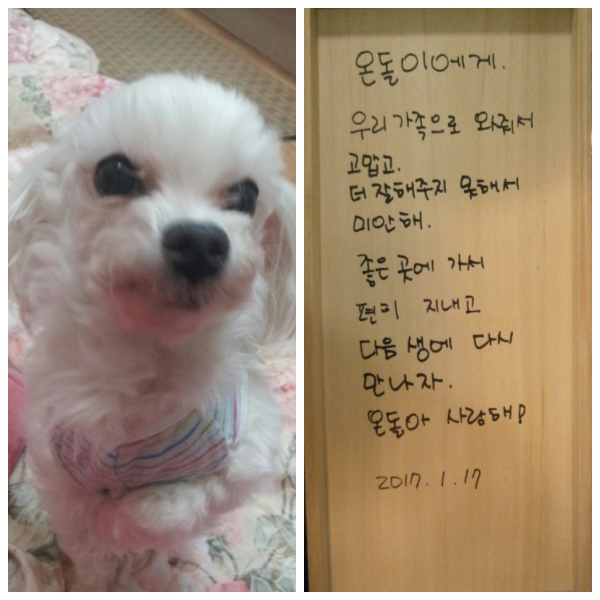 온돌이에게.
우리 가족으로 와줘서
고맙고.
더 잘해주지 못해서
미안해.
좋은 곳에 가서
편히 지내고
다음 생에 다시
만나자.
온돌아 사랑해♡
2017.1.17